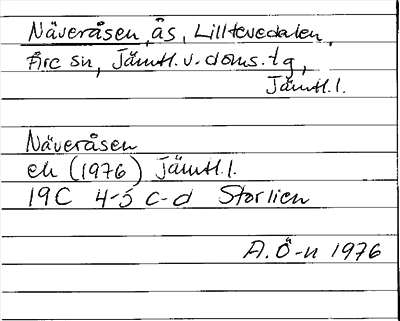 Näveråsen, ås, Lilltevedalen,
Åre sn, Jämtl. v. doms. tg,
Jämtl. l.
Näveråsen
ek (1976) Jämtl. l.
19C 4-5 c-d Storlien
A. Ö-n 1976